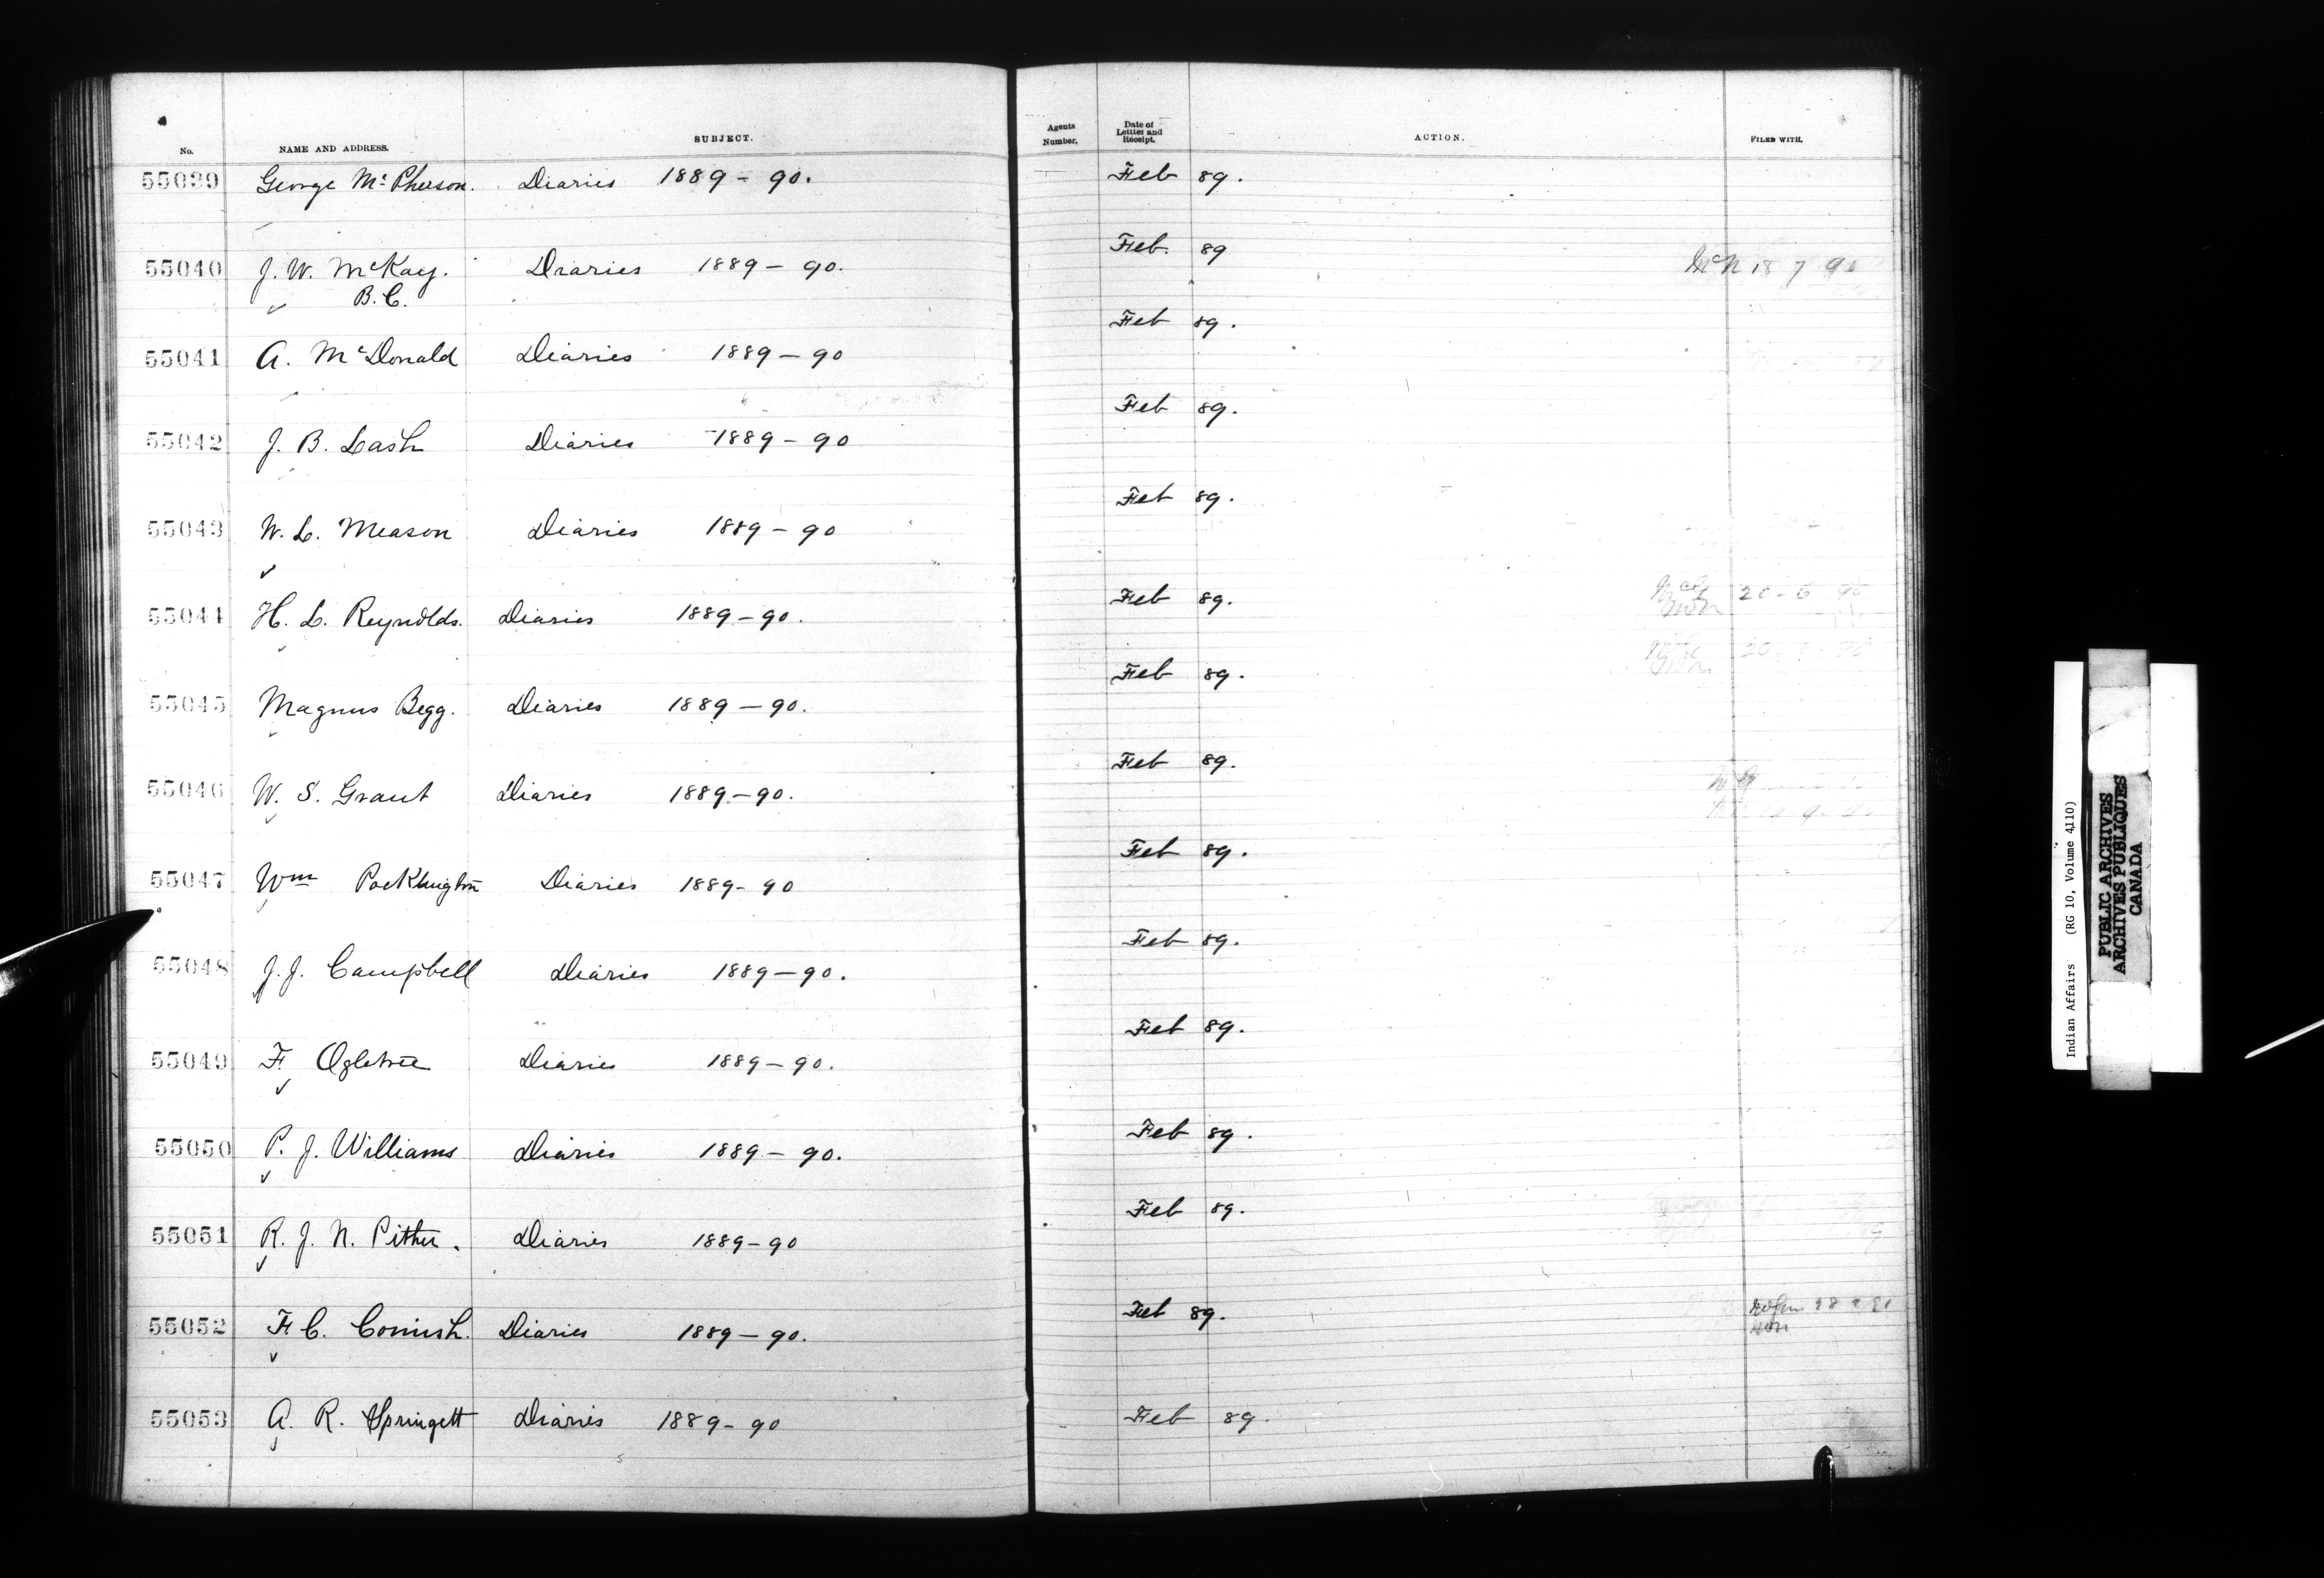 No. NAME AND ADDRESS. SUBJECT. Agents Number. Date of Letter and Receipt. ACTION. FILED WITH.
55039 George McPherson. Diaries 1889-90. Feb 89.
55040 J. W. McKay. Diaries 1889-90. Feb. 89 18 7 90
B.C.
55041 A. McDonald Diaries 1889-90 Feb 89.
55042 J. B. Lash Diaries 1889-90 Feb 89.
55043 W. L. Meason Diaries 1889-90 Feb 89.
55044 H. L. Reynolds. Diaries 1889-90. Feb 89. 20-6 90
55045 Magnus Begg. Diaries 1889-90. Feb 89.
55046 W. S. Grant Diaries 1889-90. Feb 89.
55047 Wm Pocklington Diaries 1889-90 Feb 89.
55048 J. J. Campbell Diaries 1889-90. Feb 89.
55049 F Ogletree Diaries 1889-90. Feb 89.
55050 P. J. Williams Diaries 1889-90. Feb 89.
55051 R. J. N. Pither. Diaries 1889-90 Feb 89.
55052 F C. Cornish. Diaries 1889-90. Feb 89.
55053 A. R. Springett Diaries 1889-90 Feb 89.
Indian Affairs (RG 10, Volume 4110)
PUBLIC ARCHIVES
ARCHIVES PUBLIQUES
CANADA